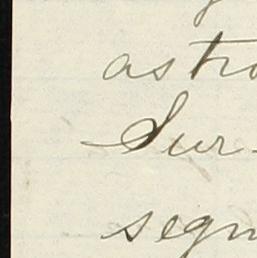 astro
Sur-
segn